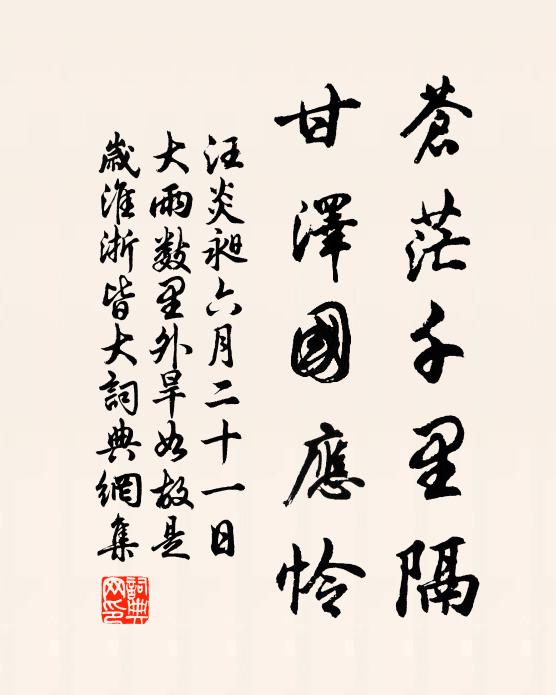 蒼茫千里隔
甘澤國應怜
汪炎昶六月二十一日
大雨數里外旱如故是
歲淮浙皆大詞典網集
詞典
网印